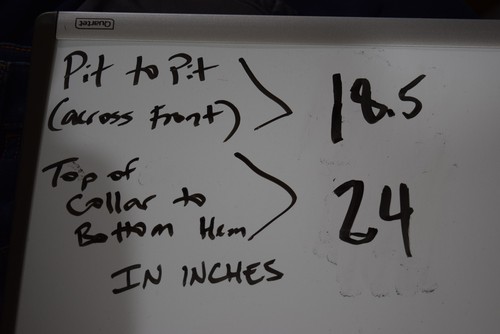 Quartet
Pit to Pit
(across Front) > 18.5
Top of
Collar to > 24
Bottom Hem
IN INCHES